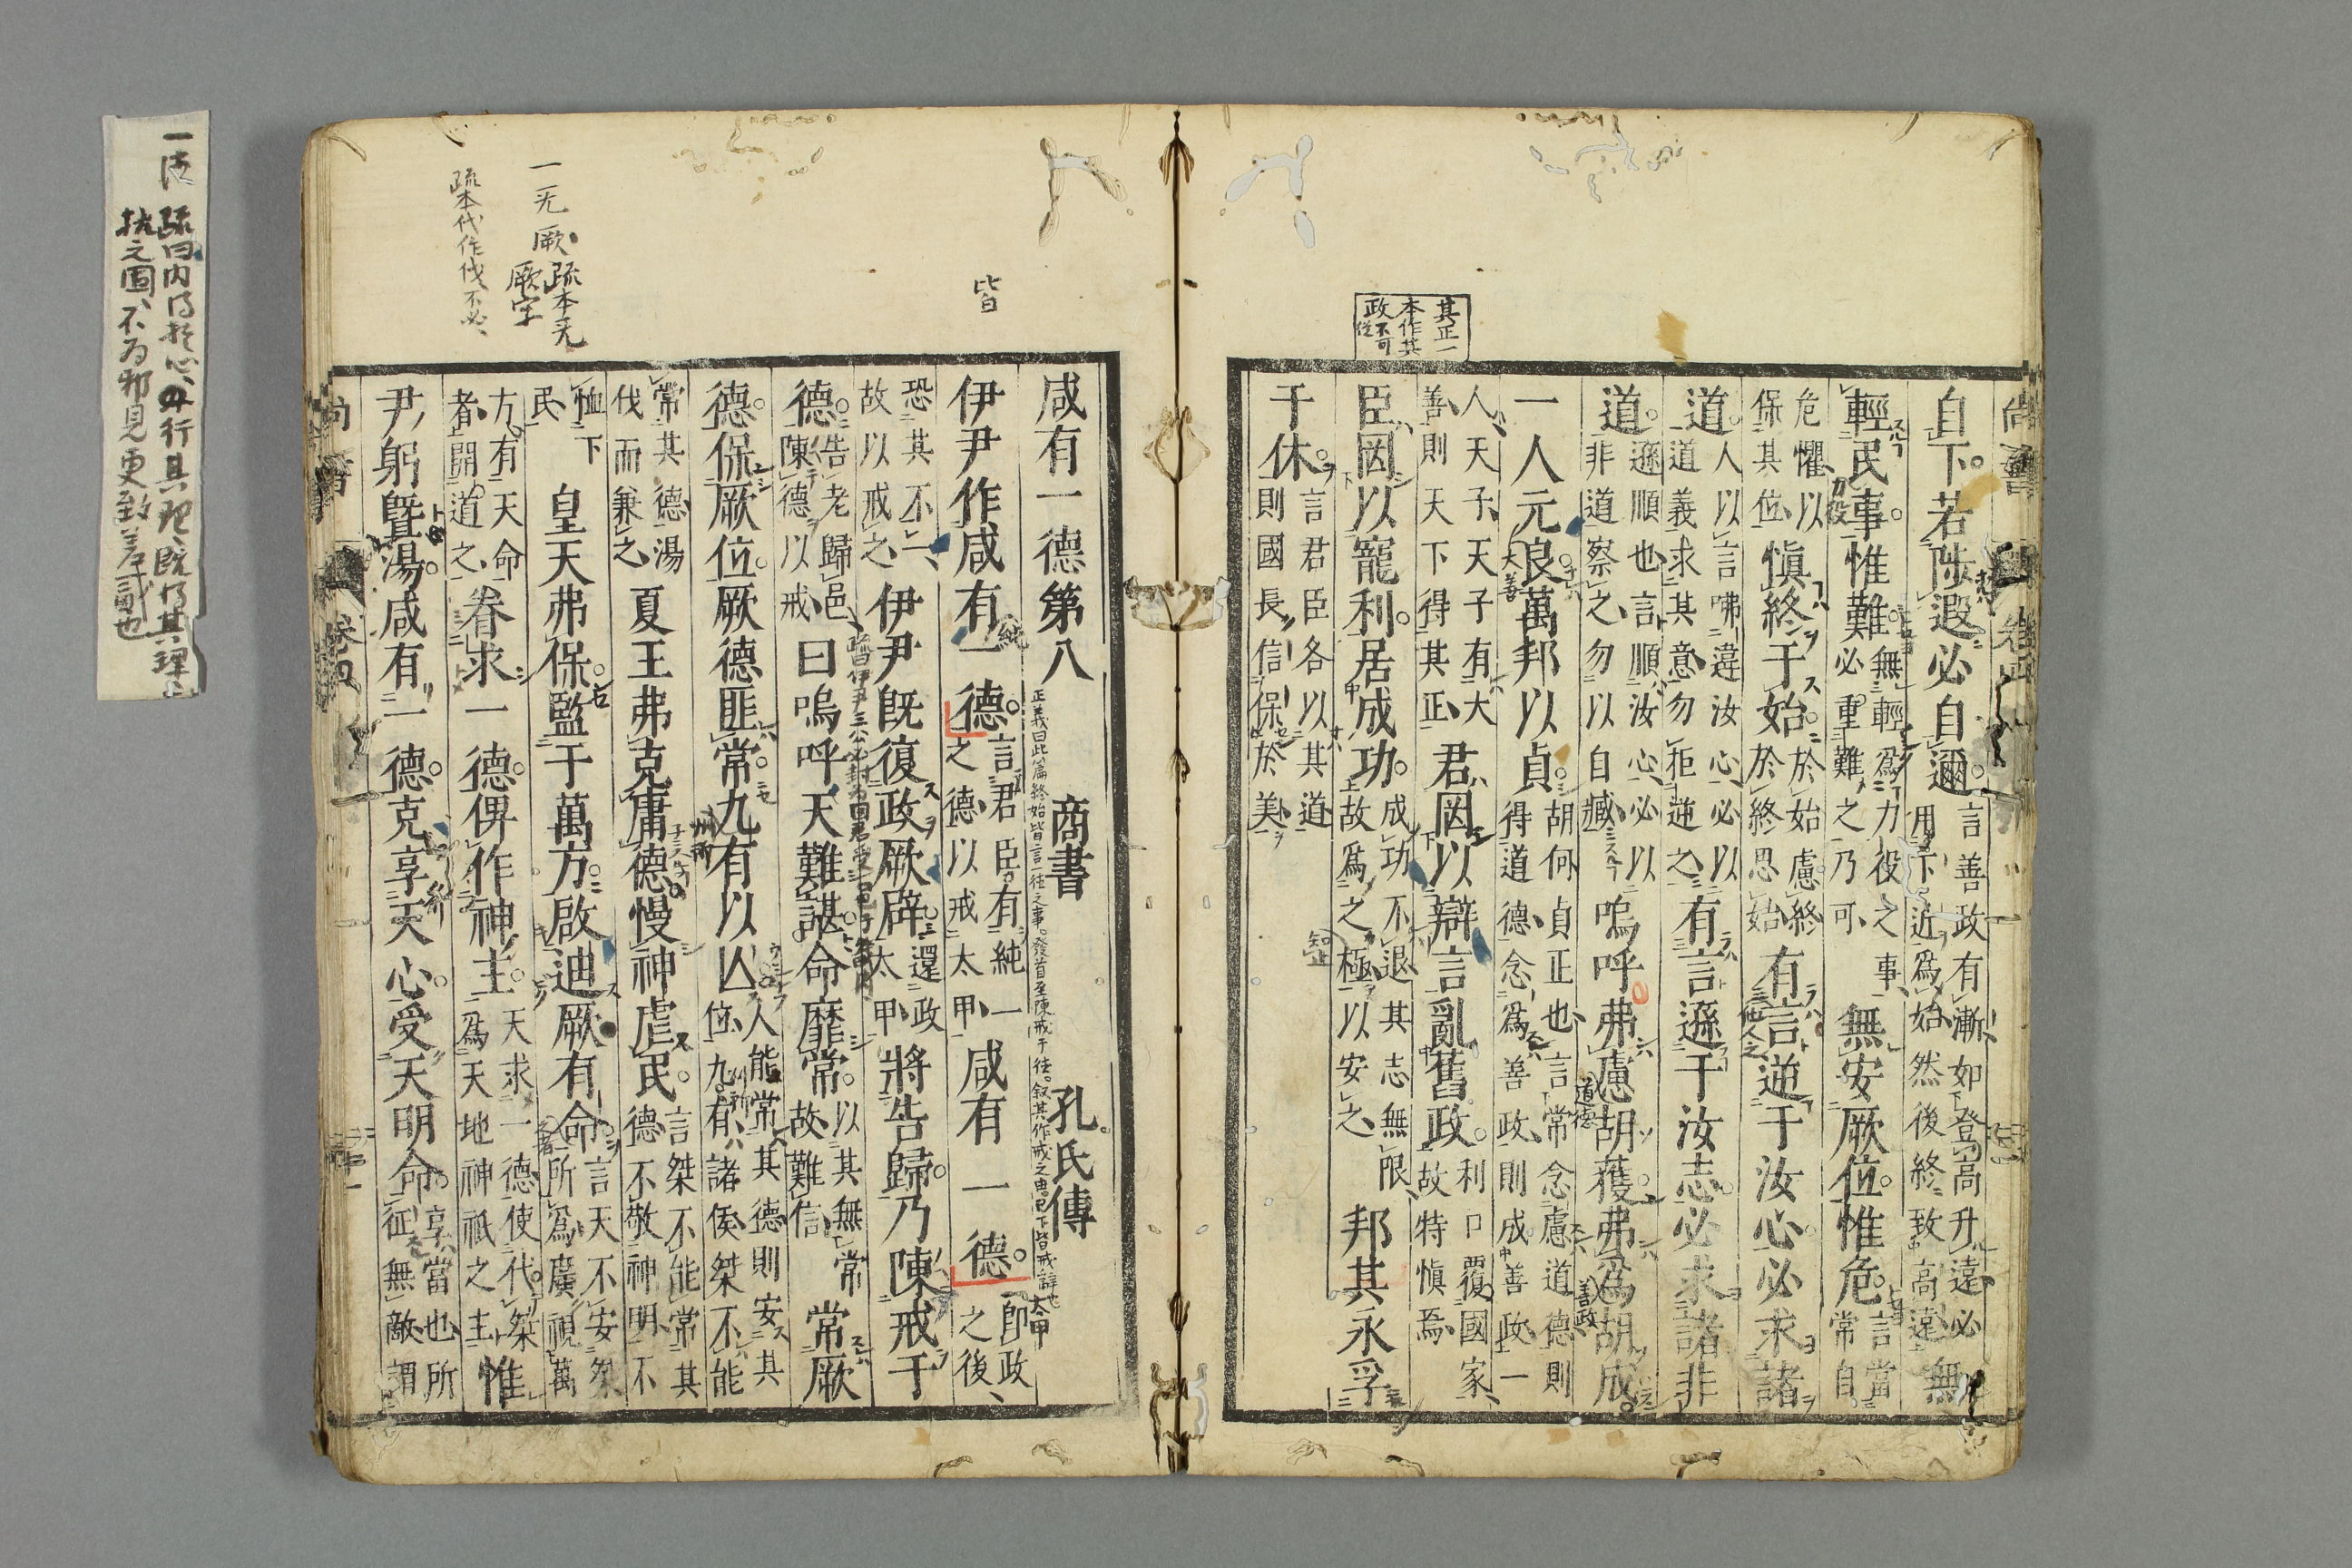 尚書 卷四
自下。若陟遐必自邇。言善政有漸如登高升遠必無用下近爲始然後終致高遠
輕民事惟難。無輕爲力役之事必重難之乃可 無安厥位惟危。言當常自
危懼以保其位 愼終于始。於始慮終於終思始 有言逆于汝心必求諸
道。人以言咈違汝心必以道義求其意勿拒逆之 有言遜于汝志。必求諸非
道。遜順也言順汝心必以非道察之勿以自臧 嗚呼弗慮胡獲。弗爲胡成。
一人元良萬邦以貞。胡何貞正也言常念慮道德則得道德念爲善政則成善政一
人天子天子有大善則天下得其正 君罔以辯言亂舊政。利口覆國家故特愼焉
臣罔以寵利。居成功。成功不退其志無限故爲之極以安之 邦其永孚
于休。言君臣各以其道則國長信保於美
其正一本作其政不可從
咸有一德第八 商書 孔氏傳
正義曰此篇終始皆言一德之事。發首至陳戒于德。叙其作戒之由已下皆戒辭也
伊尹作咸有一德。言君臣有純一之德以戒太甲 咸有一德。卽政之後
恐其不一故以戒之 伊尹旣復政厥辟。還政太甲 將告歸。乃陳戒于
德。告老歸邑陳德以戒 曰嗚呼天難諶。命靡常。以其無常故難信 常厥
德。保厥位。厥德匪常。九有以亡。人能常其德則安其位九有諸侯桀不能
常其德湯伐而兼之 夏王弗克庸德。慢神虐民。言桀不能常其德不敬神明不
恤下民 皇天弗保。監于萬方。啟迪厥有命。言天不安桀所爲廣視萬
方。有天命者開道之 眷求一德。俾作神主。天求一德使代桀爲天地神祇之主 惟
尹躬曁湯。咸有一德。克享天心。受天明命。享當也所征無敵謂
尚書 卷四
皆
一无厥、疏本无厥字
疏本代作伐不必、
一德 疏曰内得於心、行其理、既得其理
執之固、不为邪見更致差貳也